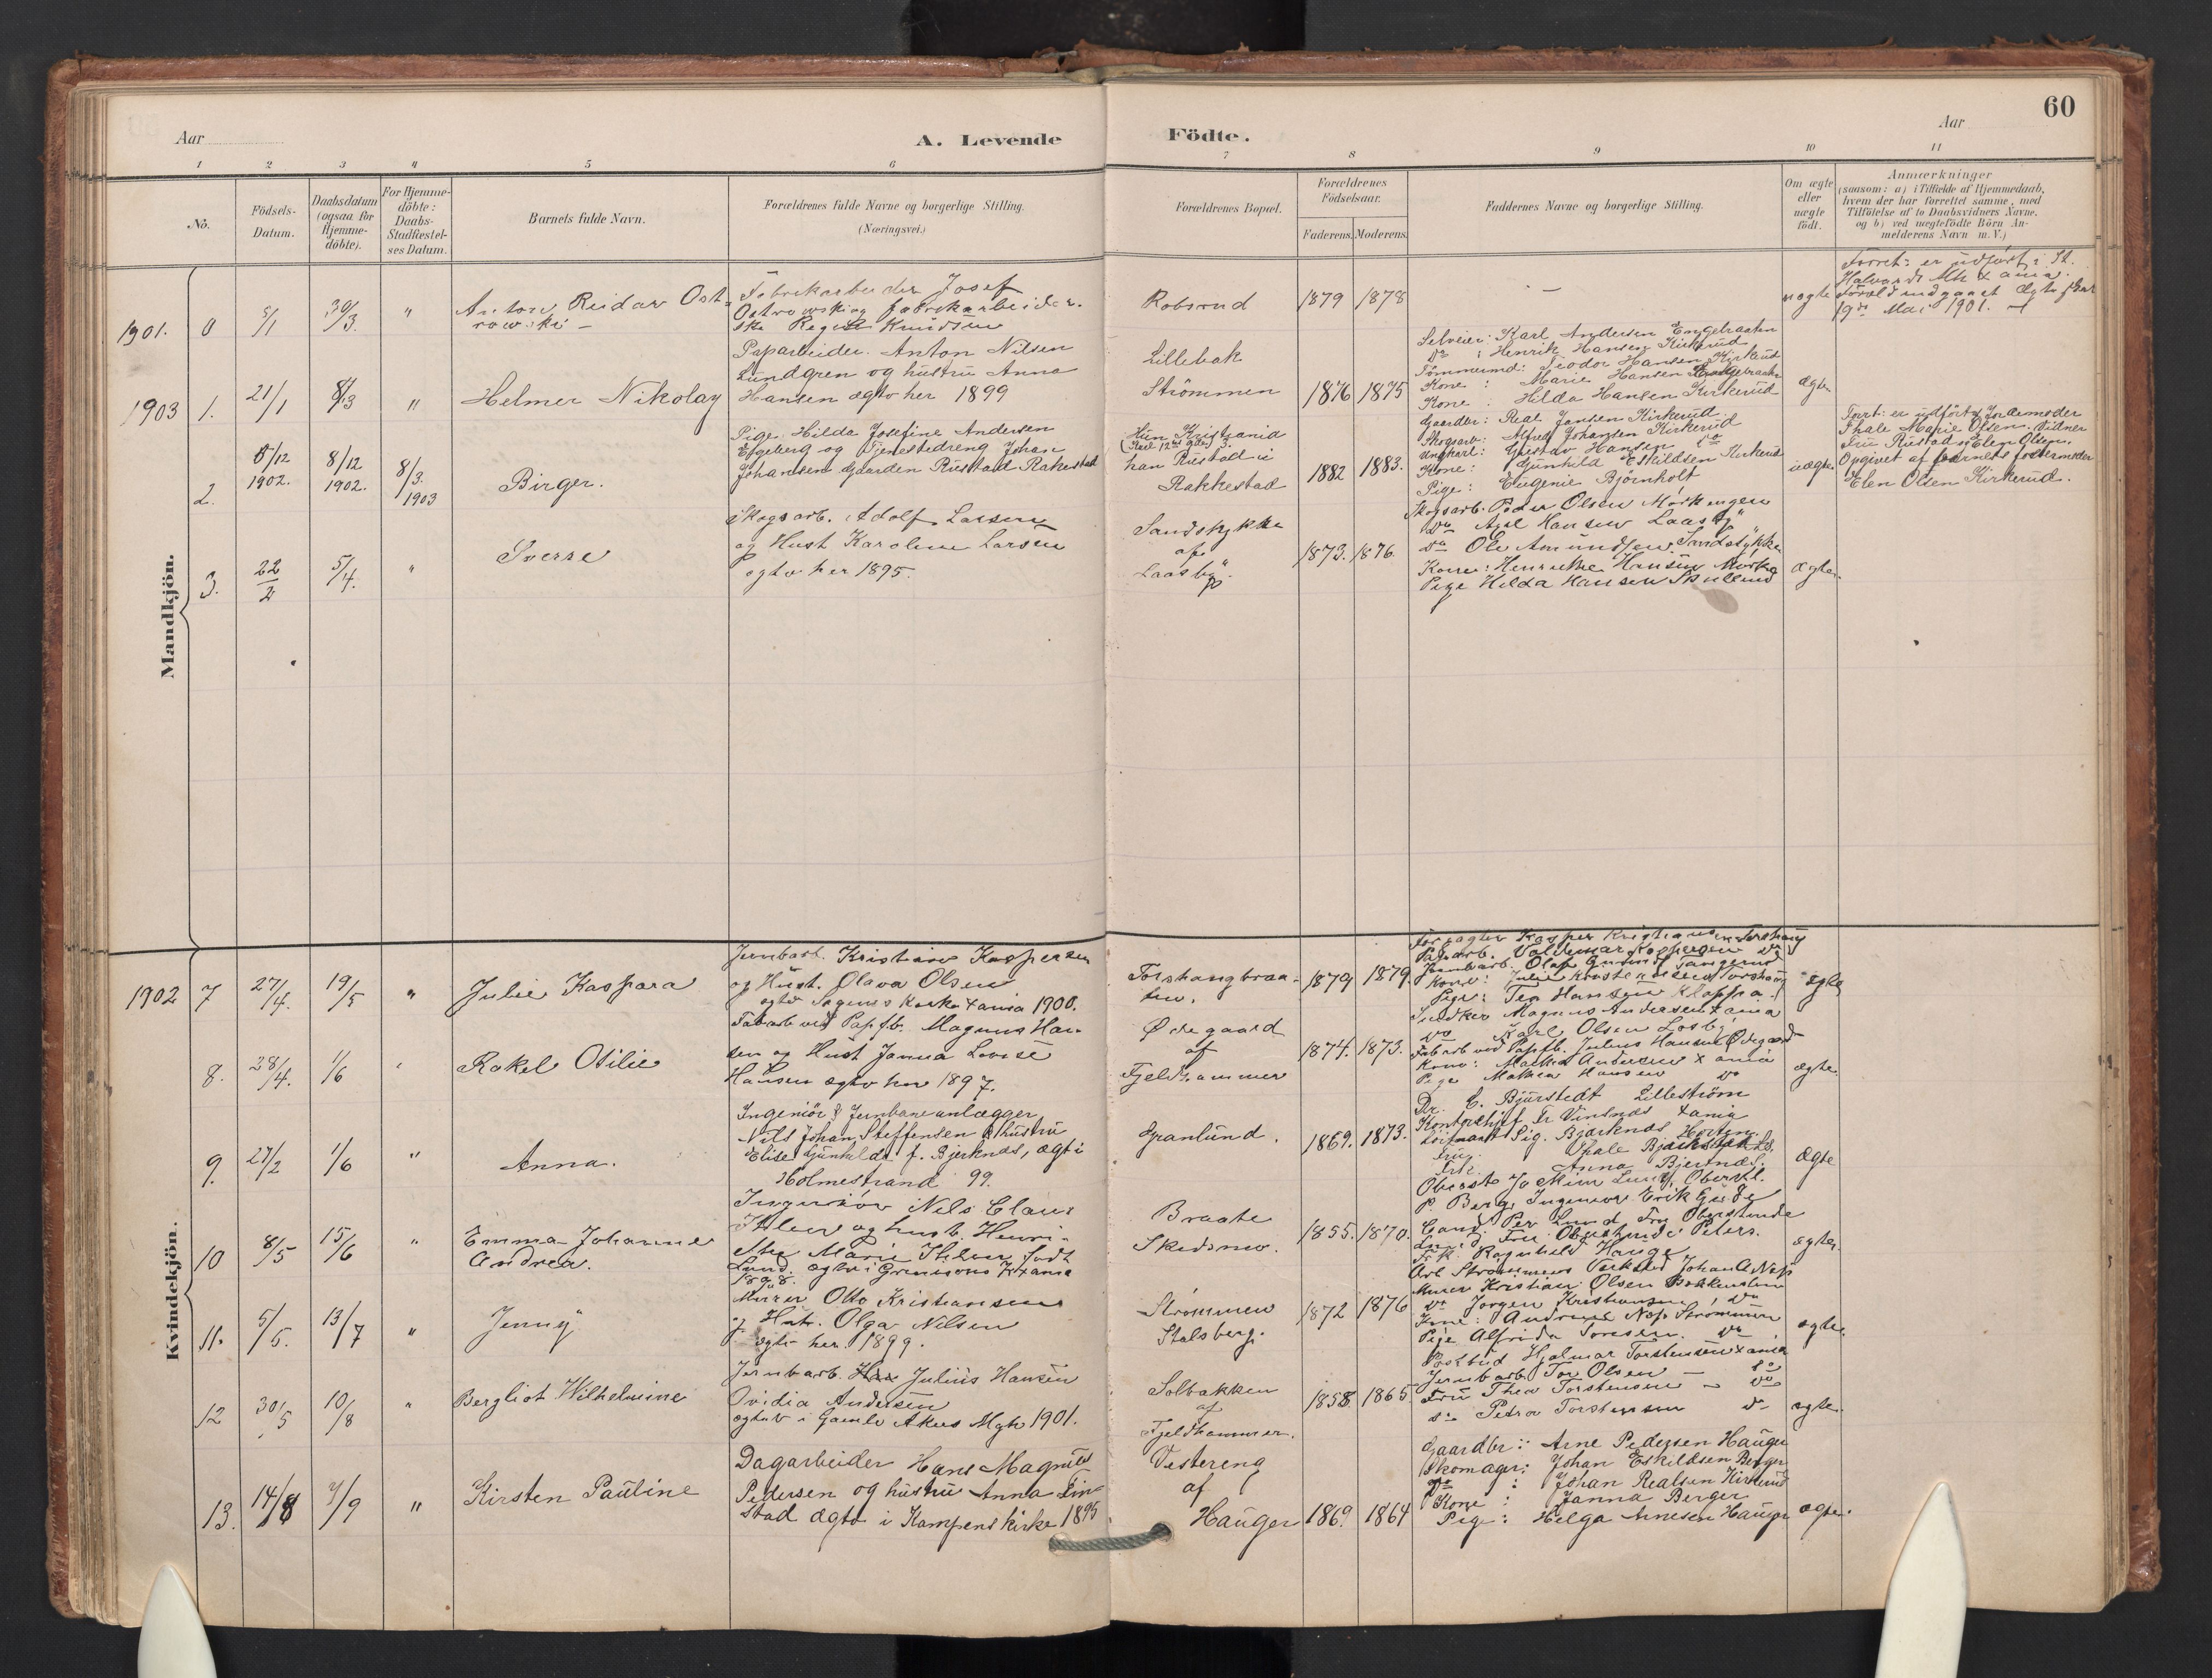 60
Aar
A. Levende
Födte.
Aar
1 2 3 4 5 6 7 8 9 10 11
No.
Födsels-
Datum.
Daabsdatum
(ogsaa for
Hjemme-
döbte).
For Hjemme-
döbte:
Daabs-
Stadfæstel-
ses Datum.
Barnets fulde Navn.
Forældrenes fulde Navne og borgerlige Stilling.
(Næringsvei.)
Forældrenes Bopæl.
Forældrenes
Födselsaar.
Faderens. Moderens.
Faddernes Navne og borgerlige Stilling.
Om ægte
eller
uægte
födt.
Anmærkninger
(saasom: a) i Tilfælde af Hjemmedaab,
hvem der har forrettet samme, med
Tilföielse af to Daabsvidners Navne,
og b) ved uægtefödte Börn An-
melderens Navn m. V.)
Mandkjön.
1901. 0 8/1 30/3. "
Anton Reidar Ost-
rowski
Fabrikarbeider Josef
Ostrowski og fabrikarbeider-
ske Regine Knudsen
Robsrud
1879 1878
uægte
Forret: er udført i St.
Halvards Mh Xania.
Foræld indgaaet Ægteskab
19de Mai 1901.
1903 1. 21/1 8/3 "
Helmer Nikolay
Paparbeider. Anton Nilsen
Lundgren og hustru Anna
Hansen ægtv her 1899
Lillebak
Strömmen
1876 1875
Selveier: Karl Andersen Engebraaten
Do : Henrik Hansen Kirkerud
Tömmermd: Teodor Hansen Kirkerud
Kone : Marie Hansen Engebraaten
Kone : Hilda Hansen Kirkerud
ægte
2. 5/12 1902. 8/12 1902. 8/3. 1903
Birger.
Pige: Hilda Josefine Andersen
Engeberg og Tjenestedreng Johan
Johansen Gaarden Rustad Rakkestad
Hun Kristiania
han Rustad i
Rakkestad
1882 1883.
Gaardbr: Real Jansen Kirkerud
Skogsarb: Alfred Johansen Kirkerud
Ungkarl: Gustav Hansen do
Kone: Gunhild Eskildsen Kirkerud
Pige: Eugenie Bjørnholt
uægte
Forrt: er udført af Jordemoder
Thale Marie Olsen. Vidner
Fru Rustad og Elen Olsen.
Opgivet af barnets fostermoder
Elen Olsen Kirkerud.
3. 22/2 5/4. "
Sverre
Skogsarb. Adolf Larsen
og Hust Karoline Larsen
ægtv her 1895.
Sandstykke
af
Laasby
1873. 1876.
Skogsarb. Peder Olsen Mörkvegen
Do Axel Hansen Laasby
do Ole Amundsen Sandstykke
Kone: Henrikke Hansen Mörk
Pige Hilda Hansen Skullerud
ægte.
Kvindekjön.
1902 7 27/4. 19/5 "
Julie Kaspara
Jernbarb. Kristian Kaspersen
og Hust. Olava Olsen
ægtv Sagenes Kirke Xania 1900.
Torshaugbraa-
ten.
1879 1879.
Forpagter Kasper Kristiansen Torshaug
Paparb. Valdemar Kaspersen do
Jernbarb. Olaf Tangerud
Kone: Julie Kristensen Torshaug
Pige: Tea Hansen Kloppa
ægte
8. 28/4. 1/6
Rakel Otilie
Fabarb ved Papfb. Magnus Han-
sen og Hust Janna Lovise
Hansen ægtv her 1897.
Ødegaard
af
Fjeldhammer
1874. 1873.
Snedker Magnus Andersen Xania
Do Karl Olsen Losby
Fabarb ved Papfb. Julius Hansen Ødegaard
Kone: Andersen Xania
Pige Hansen do
ægte.
9. 27/2 1/6 "
Anna.
Ingeniör & Jernbaneanlægger
Nils Johan Steffensen & hustru
Elise Gunhilda f. Bjerknæs, ægt i
Holmestrand 99.
Granlund.
1869. 1873.
Dr. C. Bjurstedt Lilleström
Kontorchef Fr Vinsnæs Xania
Löitnant Sig. Bjærknæs Horten.
Frk. Anna Bjerknæs.
ægte
10 8/5 15/6 "
Emma Johanne
Andrea.
Ingeniör Nils Claus
Ihlen og hust. Henri-
ette Marie Ihlen født
Lund. ægtv i Xania
1898.
Braate
Skedsmo.
1855. 1870.
Oberst Joakim Lund, Oberstl.
P. Berg, Ingeniör Erik Gude
Cand. Per Lund, Fru Oberstinde
Lund Fru Oberstinde Peters.
Frk. Ragnhild Hauge
ægte.
11. 5/5. 13/7 "
Jenny
Murer Otto Kristiansen
og Hustr. Olga Nilsen
ægtv her 1899.
Strömmen
Stalsberg.
1872 1876
Arb Strömmens Verksted Johan A Næs
Murer Kristian Olsen Bakkenslund
do Jorgen Kristiansen do
Kone: Andrine Næs Strömmen
Pige Alfrida Toresen. do
ægte.
12 30/5 10/8 "
Bergliot Wilhelmine
Jernbarb. Julius Hansen
Ovidia Andersen
ægtev i Gamle Akers Mgh 1901.
Solbakken
af
Fjeldhammer.
1858. 1865.
Postbud Hjalmar Torstensen Xania
Jernbarb Tor Olsen do
Fru Thea Torstensen do
do Petra Torstensen do
ægte.
13. 14/8 7/9 "
Kirsten Pauline
Dagarbeider Hans Magnus
Pedersen og hustru Anna Lin-
stad ægtv i Kampens kirke 1895
Vestereng
af
Hauger
1869. 1864
Gaardbr: Arne Pedersen Hauger
Skomager: Johan Eskildsen Berger
Do : Johan Realsen Kirkerud
Kone : Janna Berger
Pige: Helga Arnesen Hauger
ægte.